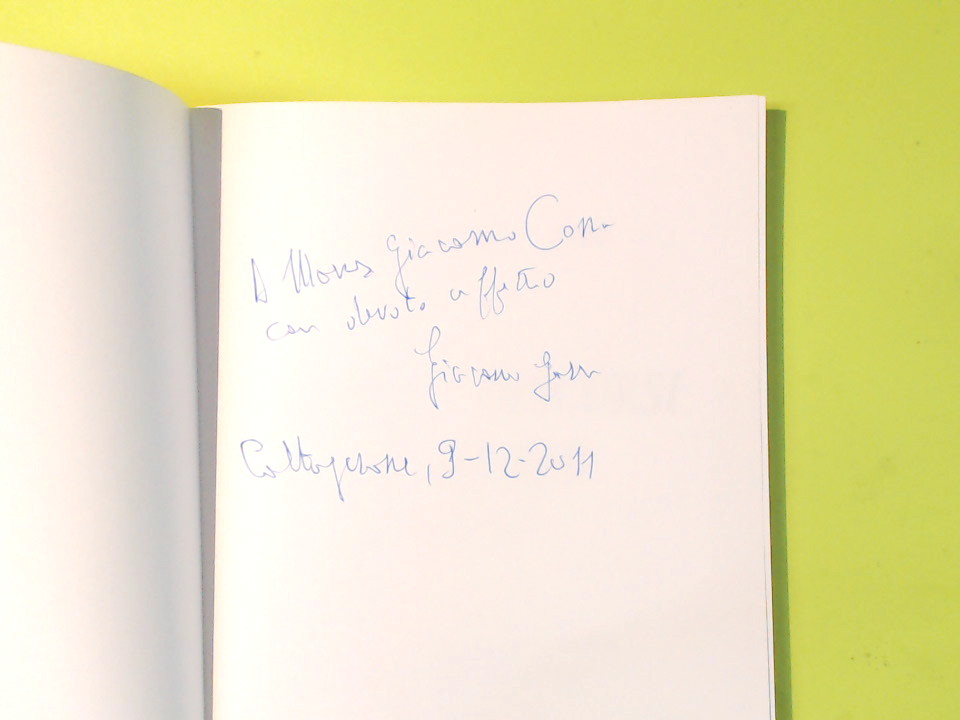 A Mons Giacomo
con devoto affetto
Giacomo
Caltagirone, 9-12-2011